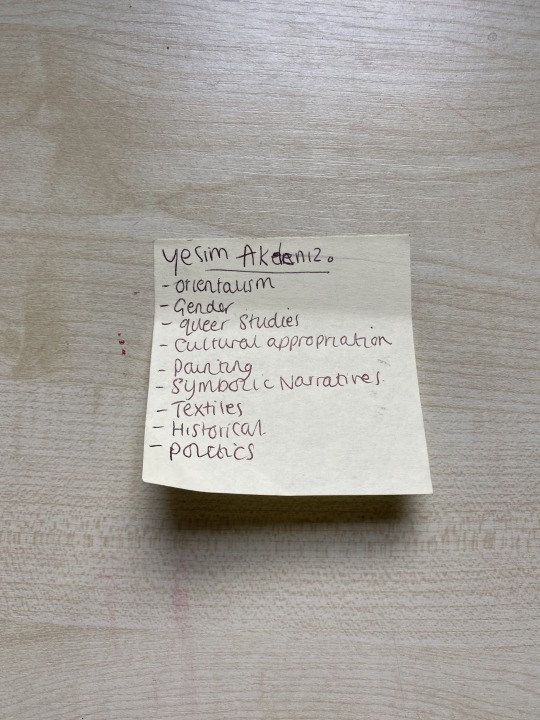 Yesim Akdeniz.
- Orientalism
- Gender
- queer Studies
- Cultural appropriation
- Painting
- Symbolic Narratives.
- Textiles
- Historical
- Politics